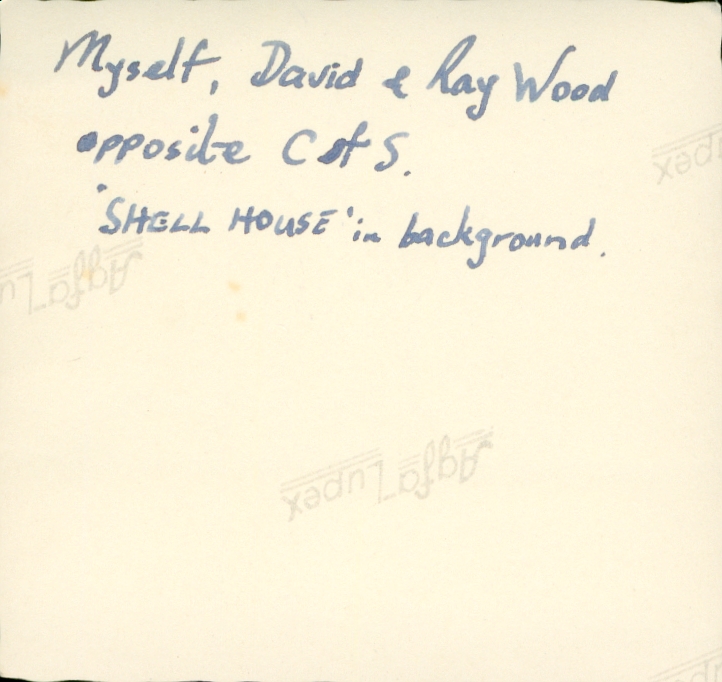 Myself, David & Ray Wood
opposite C of S.
'SHELL HOUSE' in background.
Agfa Lupex
Agfa Lupex
Lupex